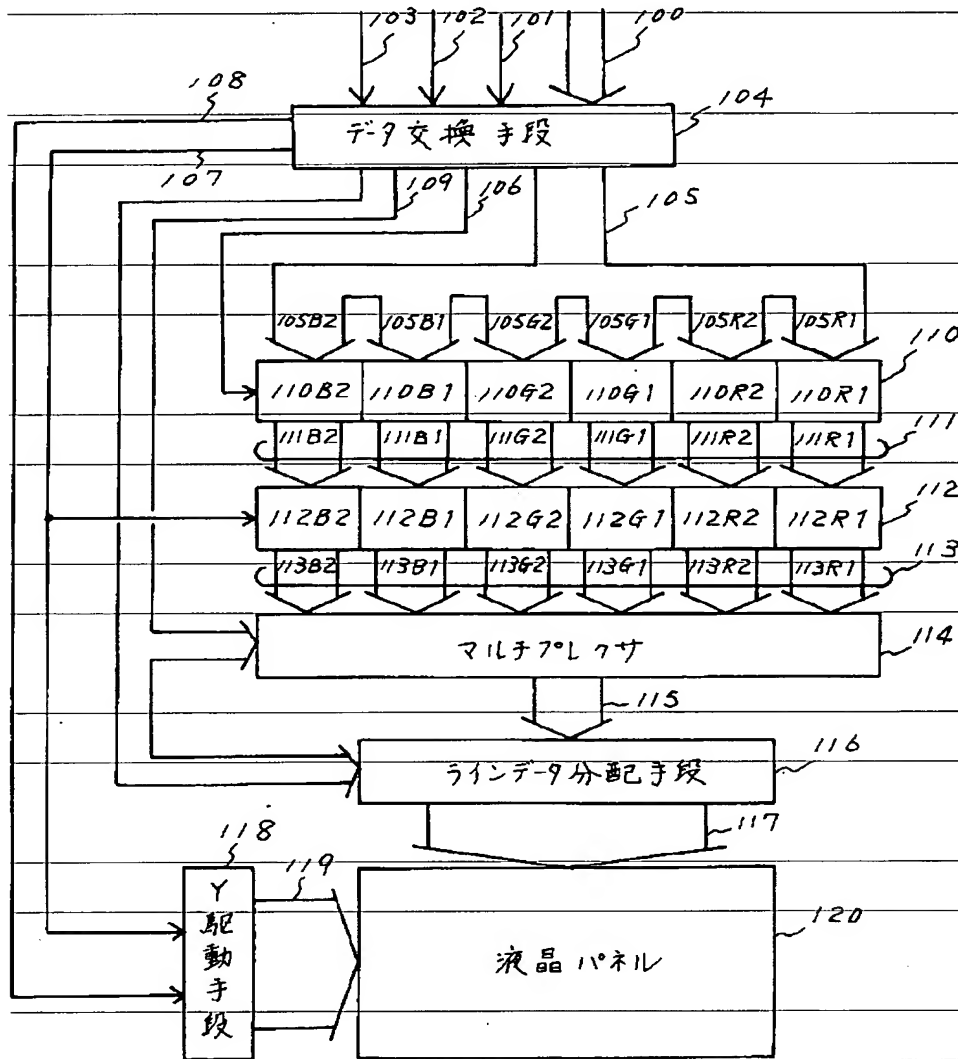 103 102 101 100
108
104
データ交換手段
107
109 106
105
105B2 105B1 105G2 105G1 105R2 105R1
110
110B2 110B1 110G2 110G1 110R2 110R1
111B2 111B1 111G2 111G1 111R2 111R1
111
112
112B2 112B1 112G2 112G1 112R2 112R1
113B2 113B1 113G2 113G1 113R2 113R1
113
マルチプレクサ
114
115
ラインデータ分配手段
116
117
118
119
Y駆動手段
液晶パネル
120